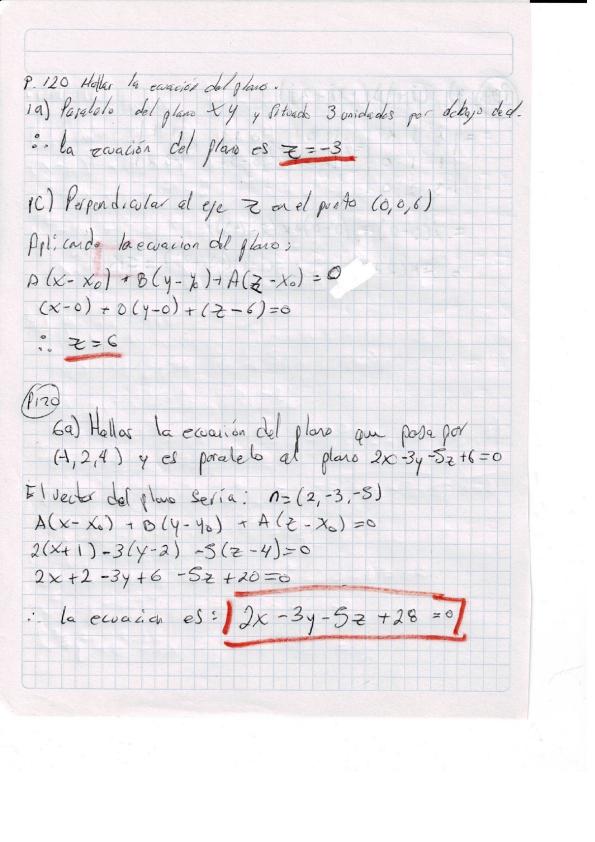 P. 120 Hallar la ecuación del plano.
1a) Paralelo del plano XY y situado 3 unidades por debajo de el.
∴ La ecuación del plano es z = -3
1C) Perpendicular al eje Z en el punto (0,0,6)
Aplicando la ecuacion del plano;
A(x - x₀) + B(y - y₀) + A(z - x₀) = 0
(x-0) + 0(y-0) + (z-6)=0
∴ z = 6
P120
6a) Hallar la ecuación del plano que pasa por
(-1,2,4) y es paralelo al plano 2x-3y-5z+6=0
El vector del plano seria: n=(2,-3,-5)
A(x-x₀) + B(y-y₀) + A(z-x₀)=0
2(x+1)-3(y-2) -5(z-4)=0
2x+2-3y+6 -5z+20=0
∴ la ecuacion es: 2x-3y-5z+28=0